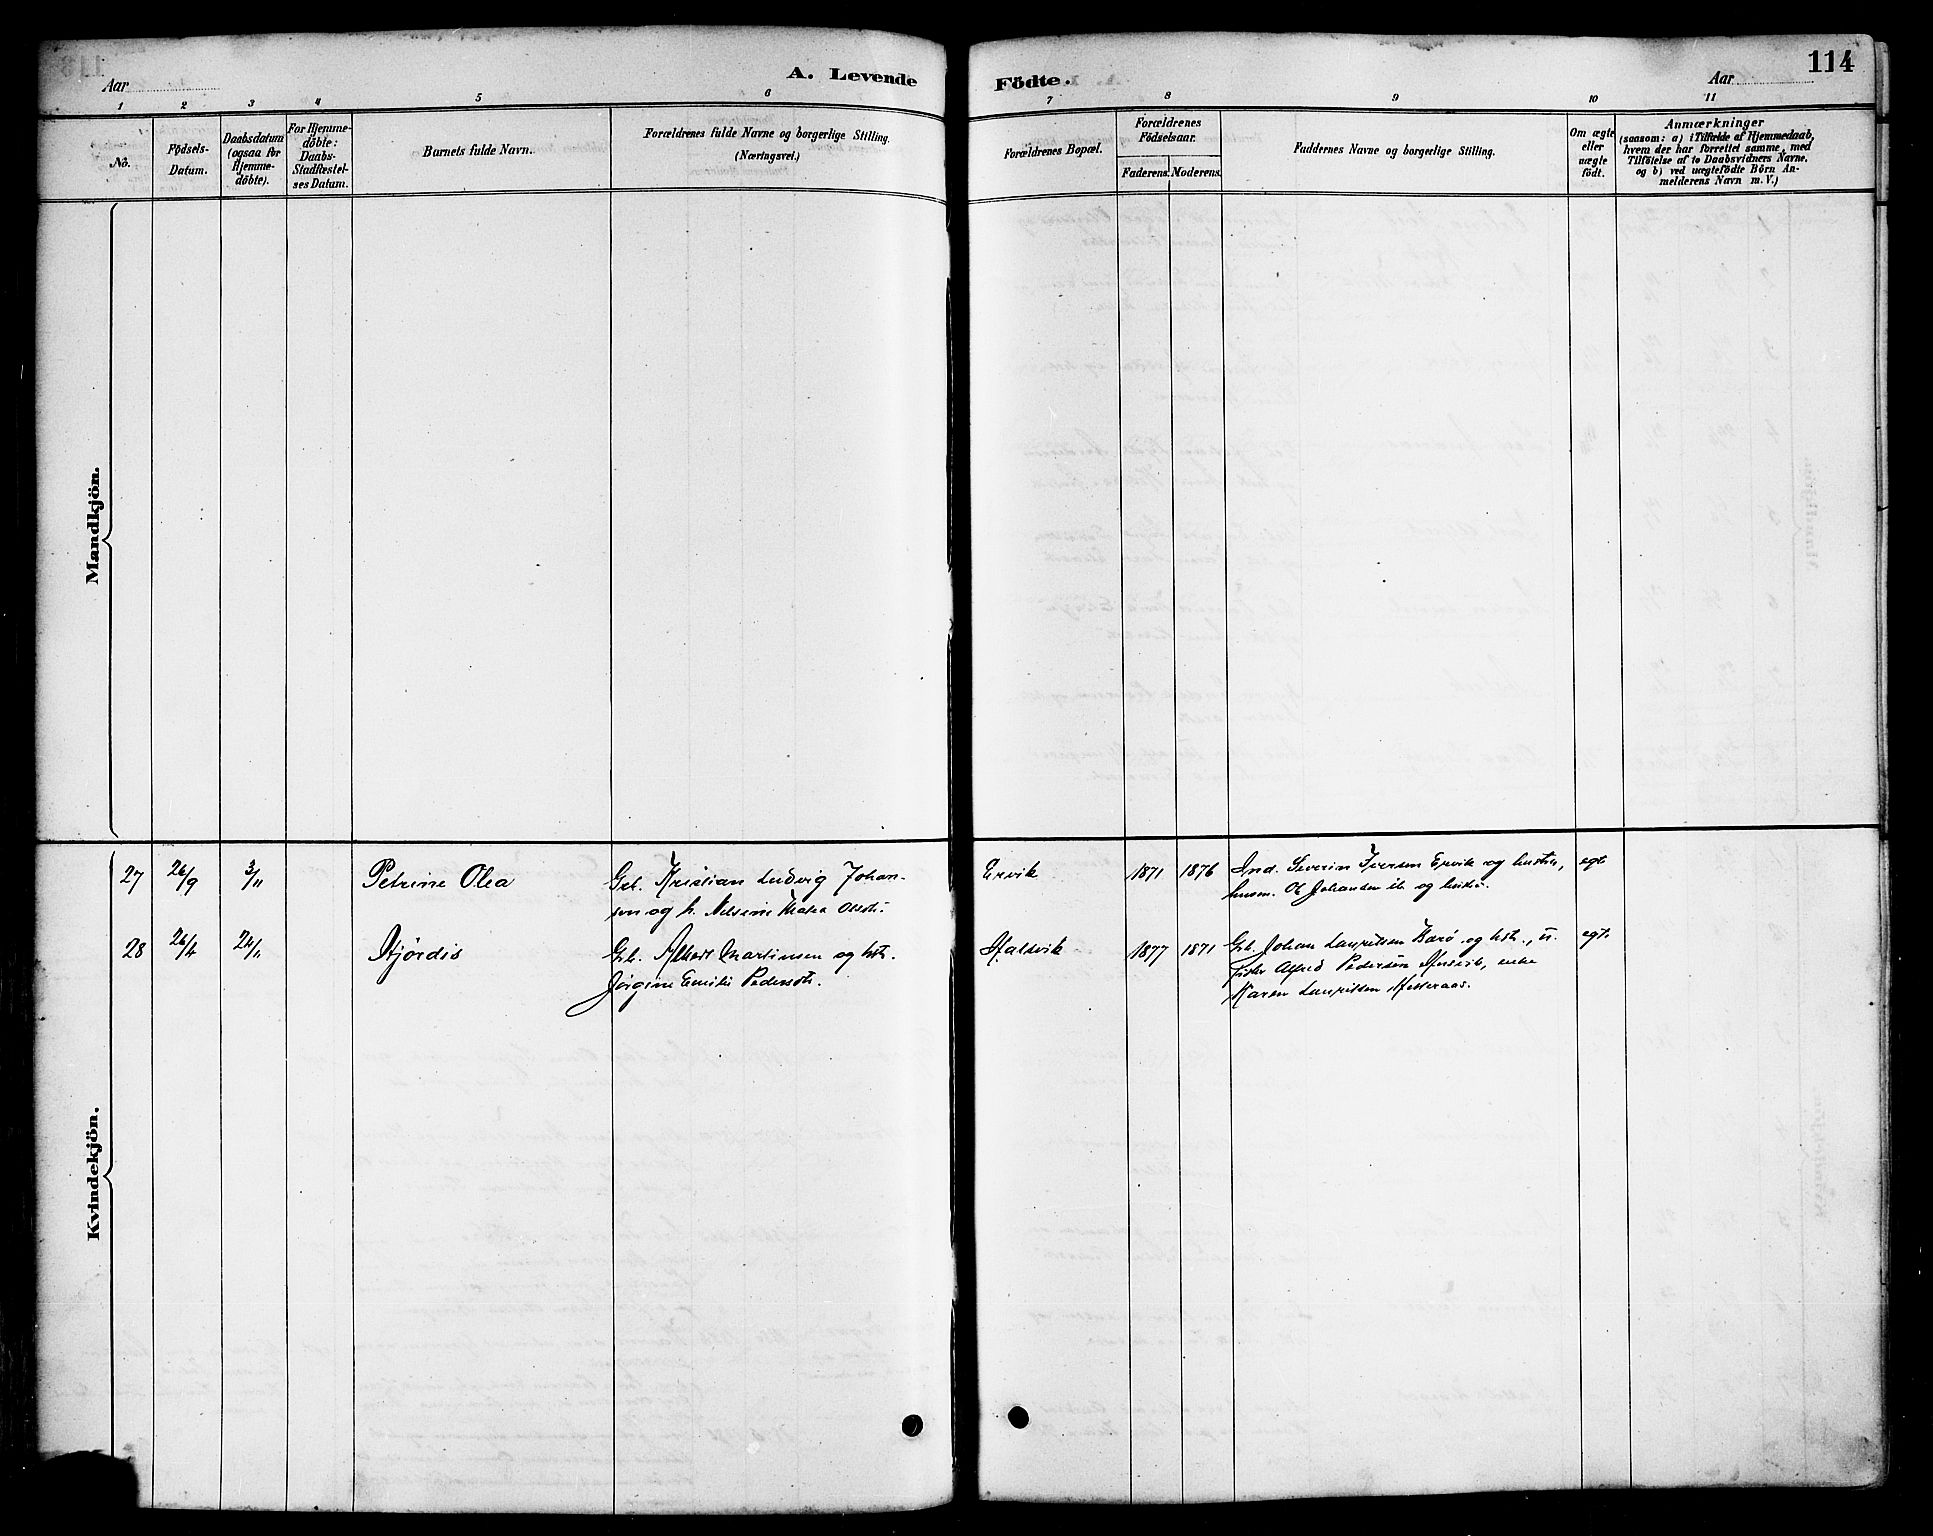 114
Aar
A. Levende
Födte.
Aar
1 2 3 4 5 6 7 8 9 10 11
No.
Fødsels-
Datum.
Daabsdatum
(ogsaa for
Hjemme-
døbte).
For Hjemme-
døbte:
Daabs-
Stadfæstel-
ses Datum.
Barnets fulde Navn.
Forældrenes fulde Navne og borgerlige Stilling.
(Næringsvei.)
Forældrenes Bopæl.
Forældrenes
Fødselsaar.
Faderens. Moderens.
Faddernes Navne og borgerlige Stilling.
Om ægte
eller
uægte
født.
Anmærkninger
(saasom: a) i Tilfælde af Hjemmedaab,
hvem der har forrettet samme, med
Tilføielse af to Daabsvidners Navne,
og b) ved uægtefødte Börn An-
melderens Navn m. V.)
Mandkjön.
Kvindekjön.
27 26/9 3/11 Petrine Olea Grb. Kristian Ludvig Johan-
sen og h. Nelsine Olsdt.
Ervik 1871 1876 Ind. Severin Iversen Ervik og hustru,
husm. Ol Johansen ib. og hustru. egt
28 26/4 24/11 Hjördis Grb. Albert Martinsen og hst.
Jörgine Emilie Pedersdt.
Halsvik 1877 1871 Grb. Johan Lauritsen og hst., u.
fisker Alfred Pedersen enke
Karen Lauritsen egt.